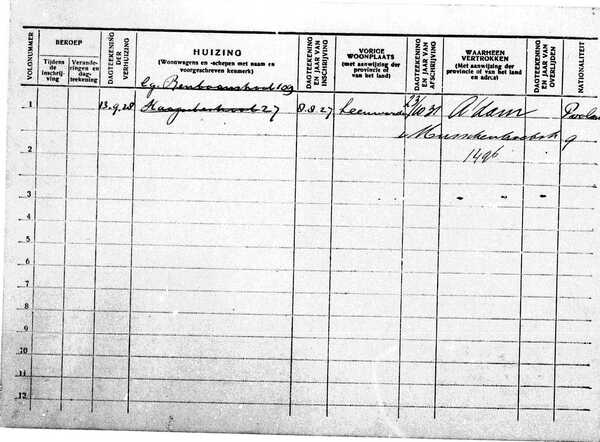 VOLGNUMMER
BEROEP
Tijdens de inschrijving
Verande-ringen en dag-teekening
DAGTEEKENING DER VERHUIZING
HUIZING
(Woonwagens en -schepen met naam en voorgeschreven kenmerk)
DAGTEEKENING EN JAAR VAN INSCHRIJVING
VORIGE WOONPLAATS
(met aanwijzing der provincie of van het land)
DAGTEEKENING EN JAAR VAN AFSCHRIJVING
WAARHEEN VERTROKKEN
(Met aanwijzing der provincie of van het land en adres)
DAGTEEKENING EN JAAR VAN OVERLIJDEN
NATIONALITEIT
1 13.9.28 27 8.8.27 Leeuwarden A'dam
2
149 b
3
4
5
6
7
8
9
10
11
12